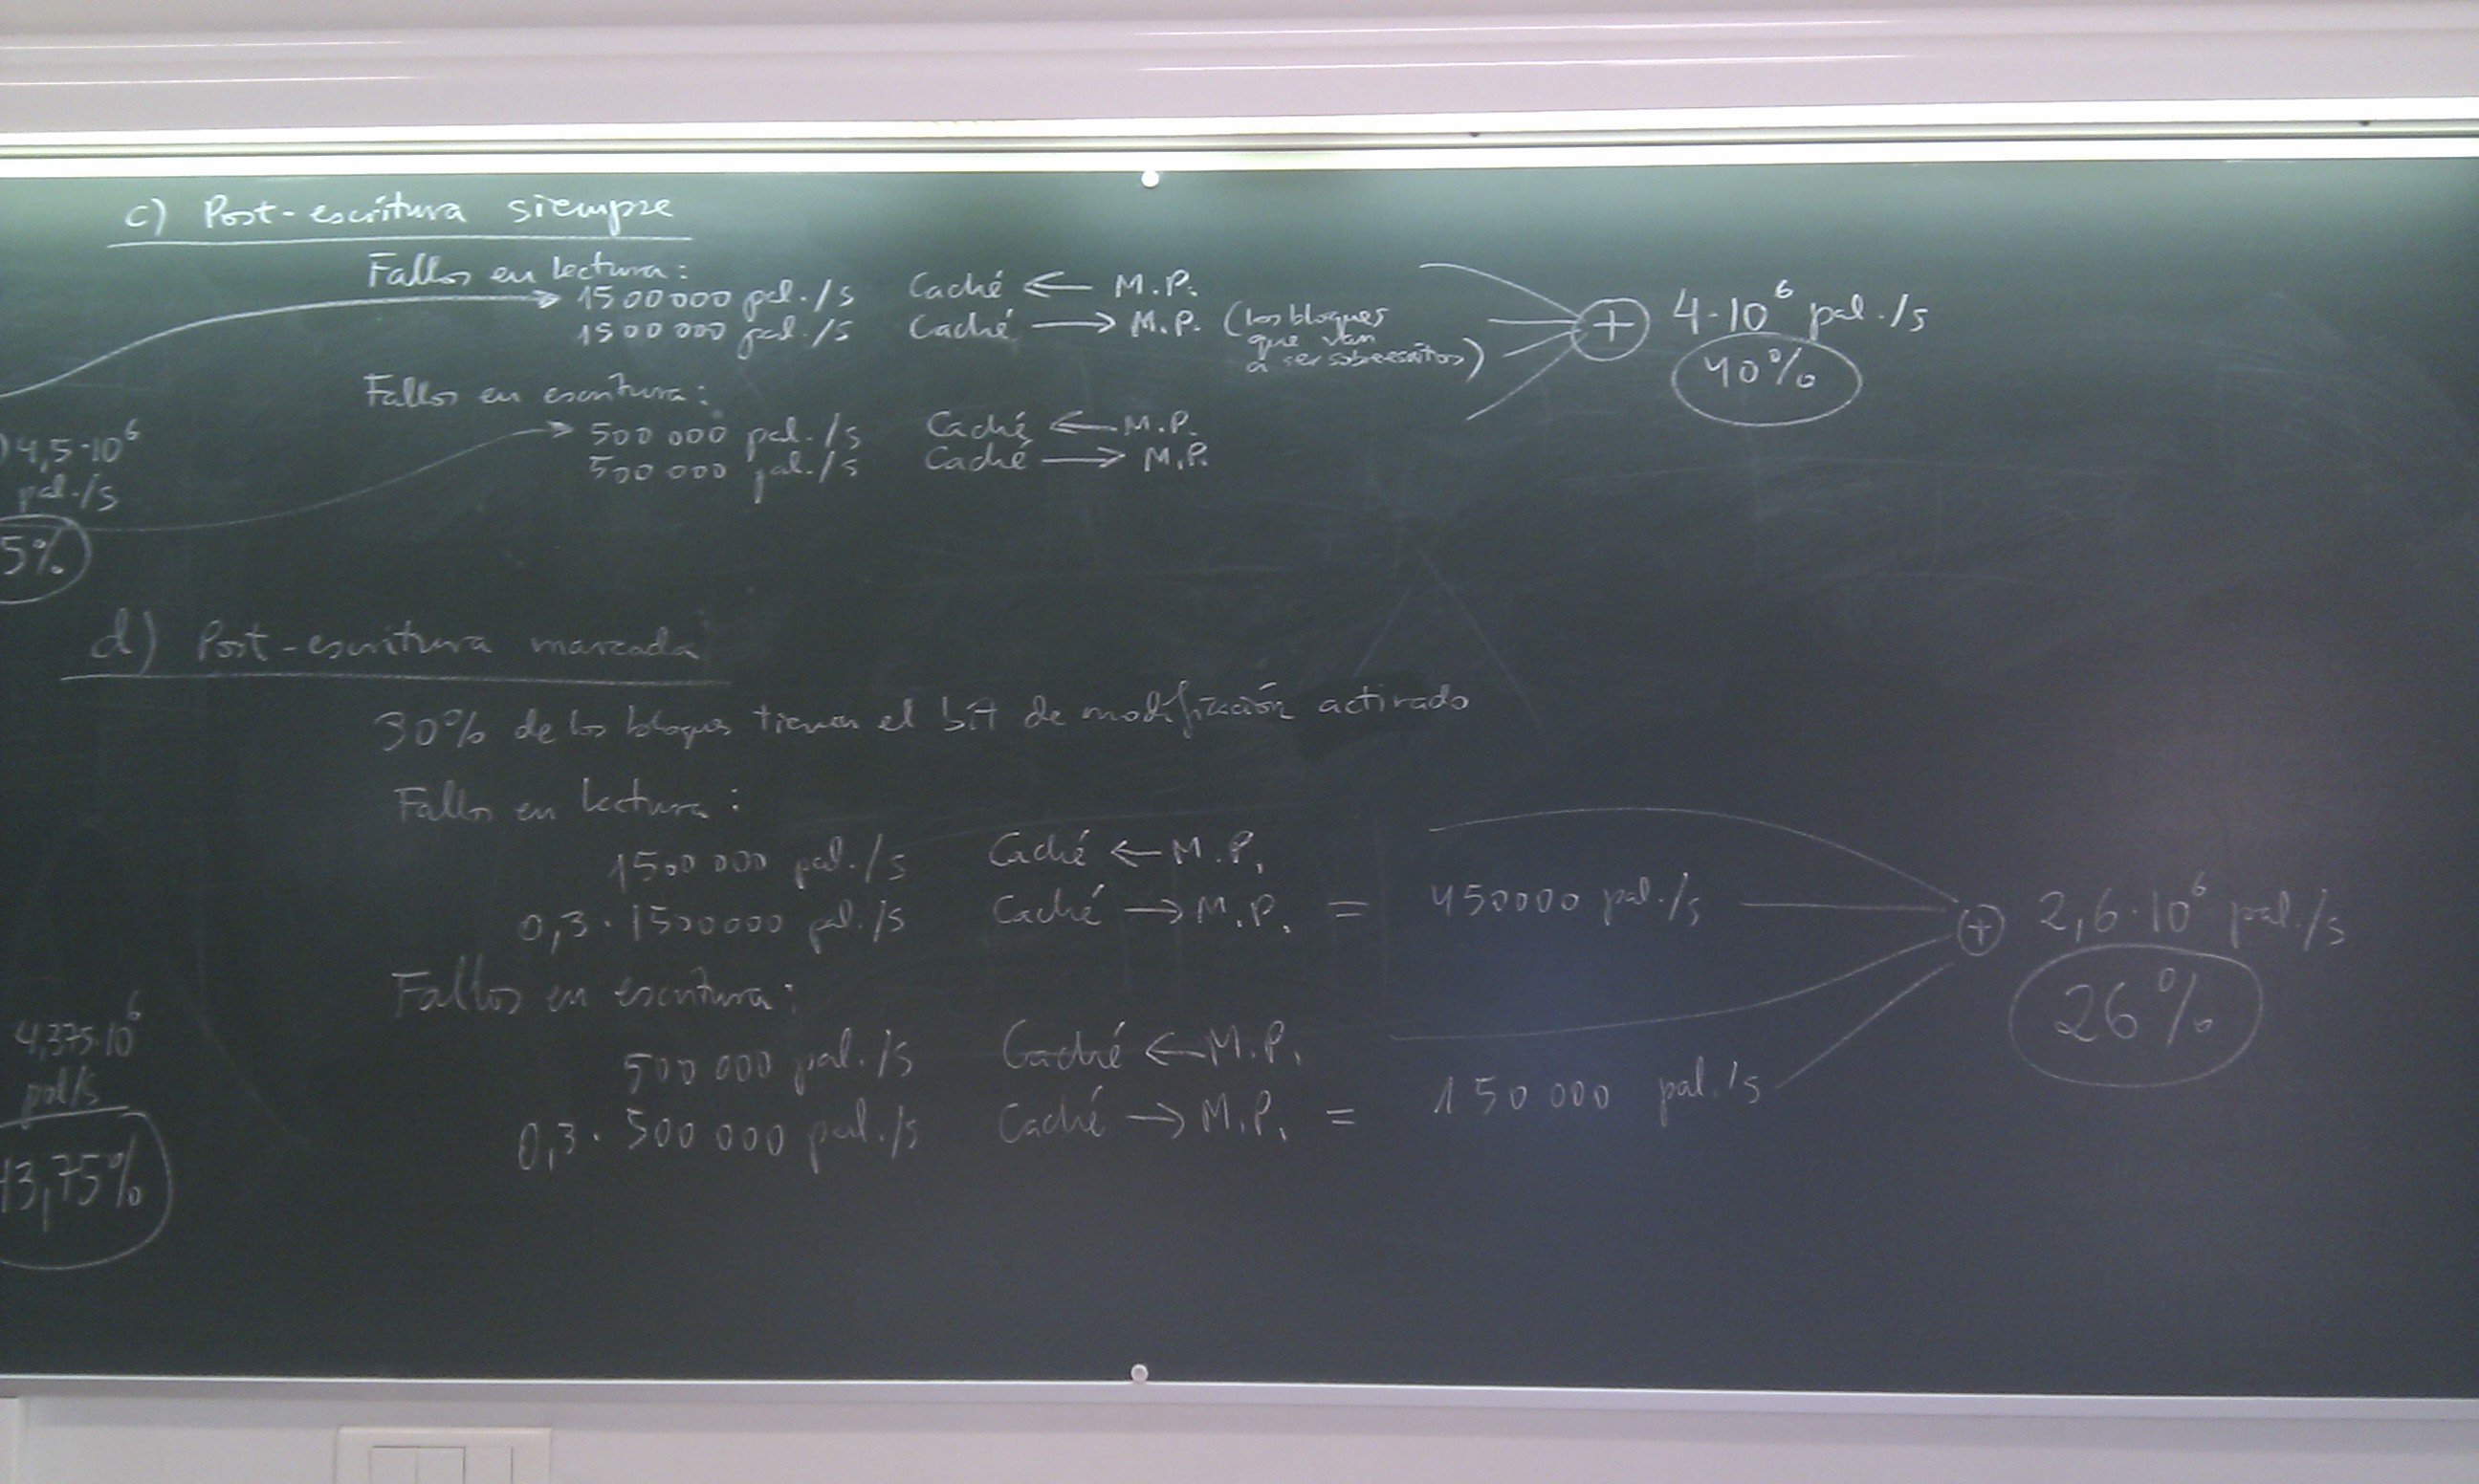 c) Post-escritura siempre
Fallos en lectura:
1500000 pal./s Caché ← M.P.
1500000 pal./s Caché → M.P. (los bloques
que van
a ser sobreescritos)
+ 4·10⁶ pal./s
40%
Fallos en escritura:
500 000 pal./s Caché ← M.P.
500 000 pal./s Caché → M.P.
4,5·10⁶
pal./s
5%
d) Post-escritura marcada
30% de los bloques tienen el bit de modificación activado
Fallos en lectura:
1500 000 pal./s Caché ← M.P.
0,3·1500000 pal./s Caché → M.P. = 450000 pal./s
+ 2,6·10⁶ pal./s
26%
Fallos en escritura:
500 000 pal./s Caché ← M.P.
0,3·500 000 pal./s Caché → M.P. = 150 000 pal./s
4,375·10⁶
pal/s
43,75%